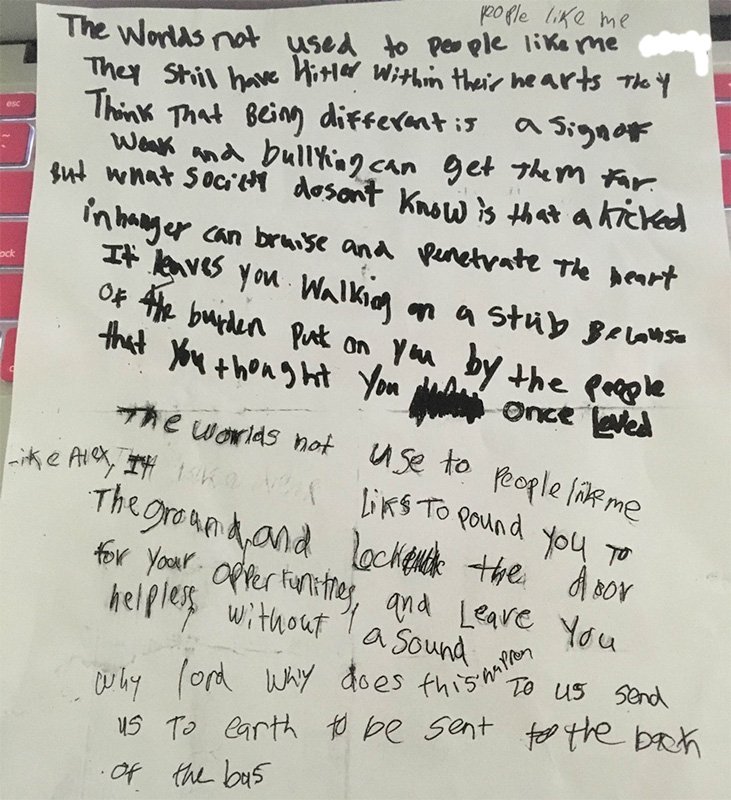 people like me
The Worlds not used to people like me
They Still have Hitler Within their hearts They
Think That Being different is a sign of
Weak and bullying can get them far.
But what Society dosent Know is that a kicked
in hanger can bruise and penetrate The heart
It leaves you Walking on a stub Because
of the burden Put on you by the people
that You thought You once Loved
The worlds not use to people like me
like Alex, It likes To pound you to
The ground, and Lock the door
for your oppertunities, and Leave You
helpless, without a sound
why lord why does this happen To us send
us To earth to be sent to the back
of the bus
esc